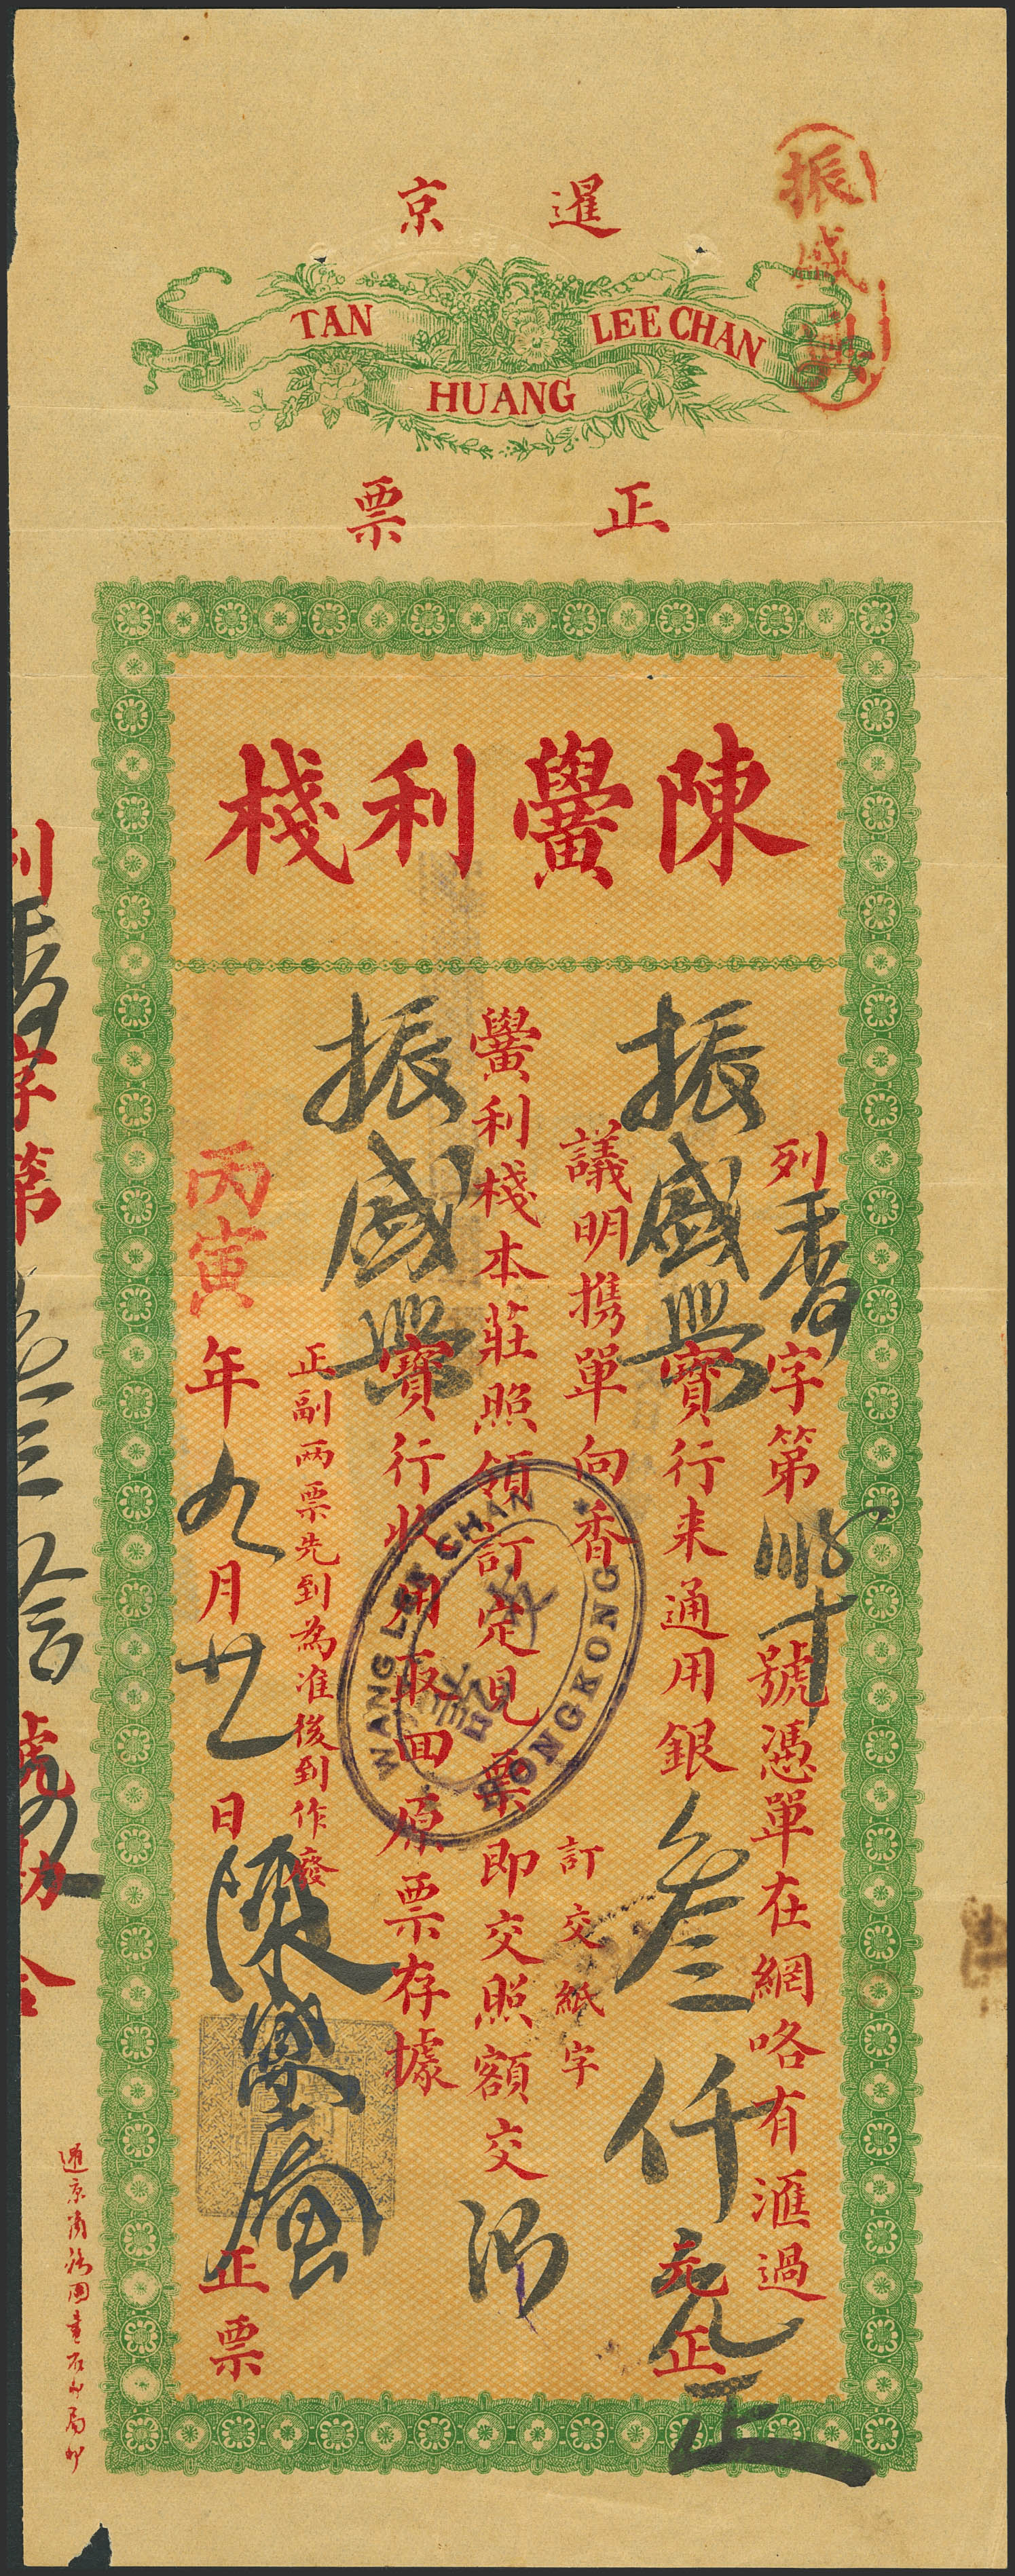 暹京
TAN LEE CHAN
HUANG
正票
振盛興
陳黌利棧
列香字第 號憑單在網咯有滙過
振盛興寶行来通用銀叁仟元正
元正
議明携單向香 訂交紙字
黌利棧本莊照領訂定見票即交照額交
振盛興寶行收用取回原票存據
正副两票先到為准後到作廢
丙寅年九月廿日陳黌
正票
WANG LEE CHAN
HONGKONG
列香字第 叁拾號